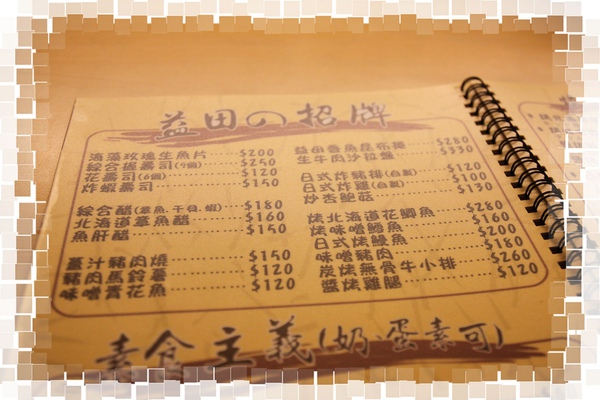 益田の招牌
海藻玫瑰生魚片 $200
綜合握壽司(9個) $250
花壽司(6個) $120
炸蝦壽司 $150
綜合醋(章魚,干貝,蝦) $180
北海道章魚醋 $160
魚肝醋 $150
薑汁豬肉燒 $150
豬肉馬鈴薯 $120
味噌賞花魚 $120
生牛肉沙拉盤 $350
日式炸豬排(白飯) $120
日式炸雞(白飯) $100
炒杏鮑菇 $130
烤北海道花鯽魚 $280
烤味噌鱈魚 $160
日式烤鰻魚 $200
味噌豬肉 $180
炭烤無骨牛小排 $260
醬烤雞腿 $120
素食主義(奶·蛋素可)